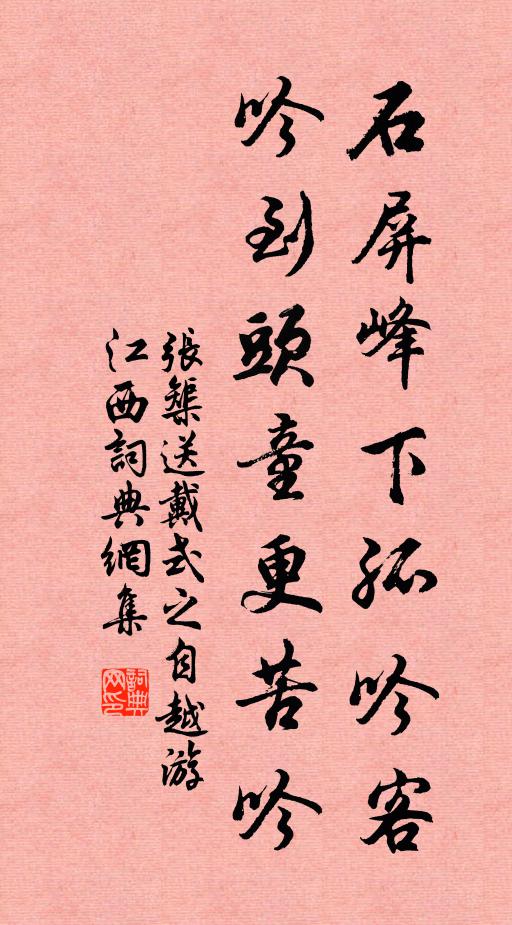 石屏峰下孤吟客
吟到頭童更苦吟
張榘送戴式之自越游
江西詞典網集
詞典網印